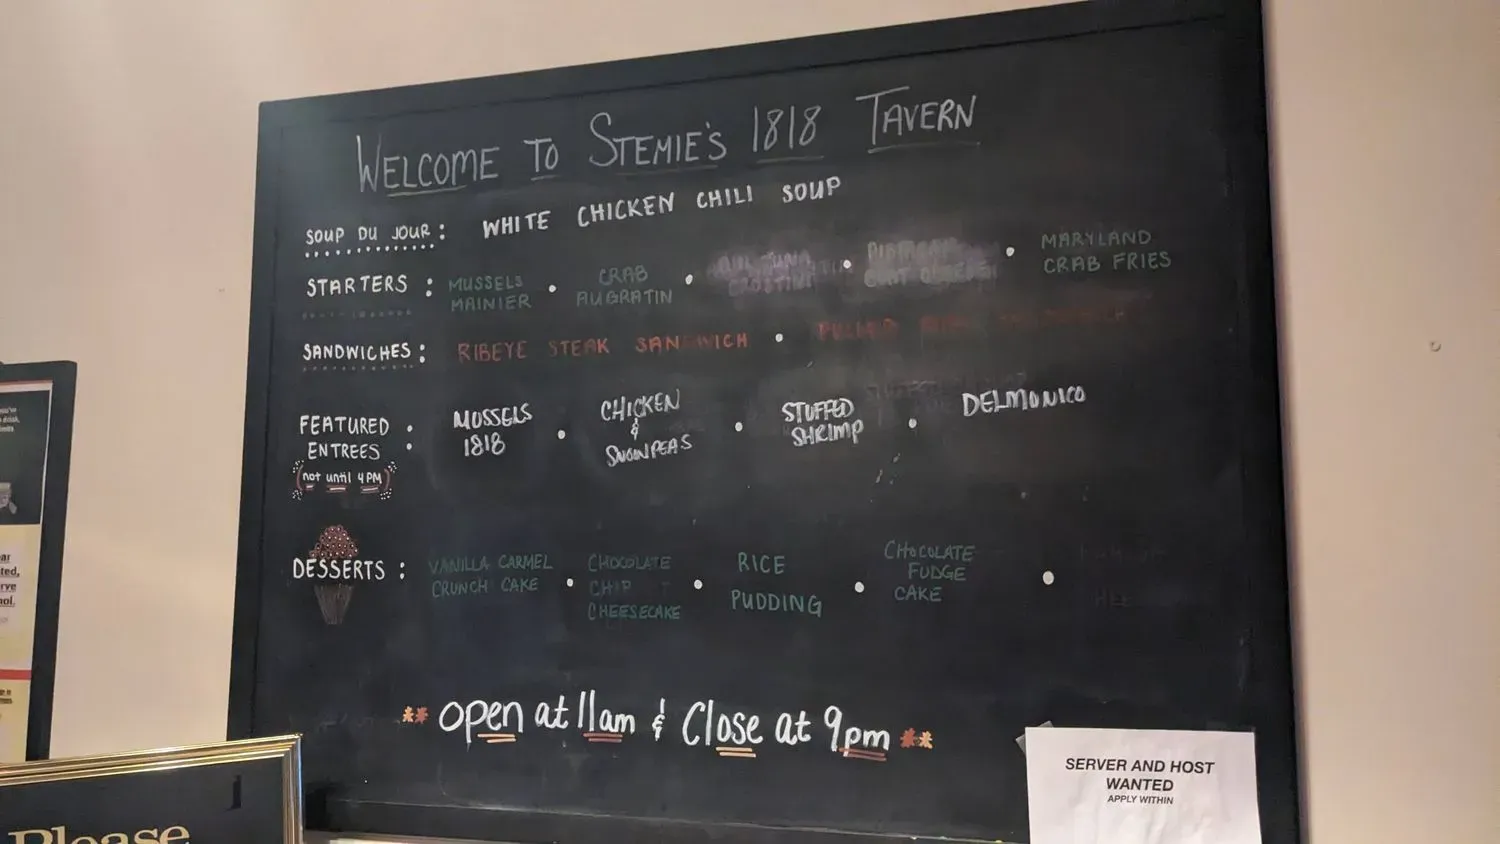 WELCOME TO STEMIE'S 1818 TAVERN
SOUP DU JOUR: WHITE CHICKEN CHILI SOUP
STARTERS: MUSSELS MAINIER • CRAB AUGRATIN • TUNA CROSTINI • • MARYLAND CRAB FRIES
SANDWICHES: RIBEYE STEAK SANDWICH • PULLED
FEATURED ENTREES: MUSSELS 1818 • CHICKEN & SNOWPEAS • STUFFED SHRIMP • DELMONICO
(not until 4 PM)
DESSERTS: VANILLA CARMEL CRUNCH CAKE • CHOCOLATE CHIP CHEESECAKE • RICE PUDDING • CHOCOLATE FUDGE CAKE •
** Open at 11am & Close at 9pm **
SERVER AND HOST
WANTED
APPLY WITHIN
Please